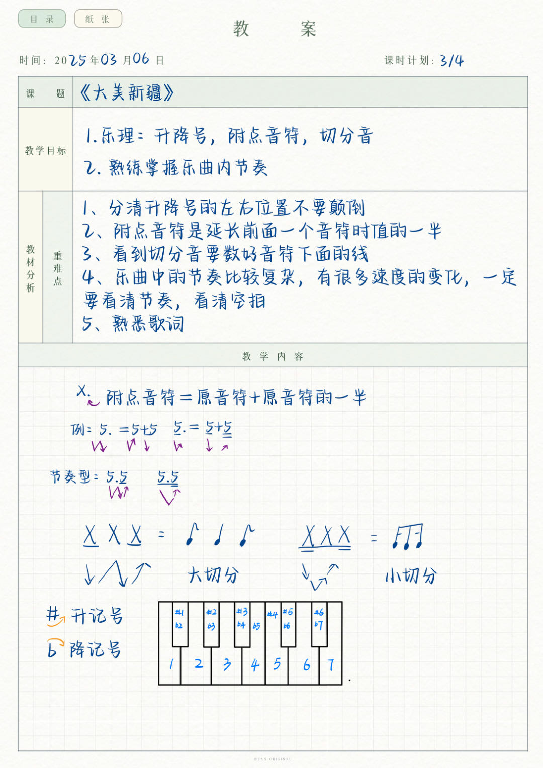 目 录
纸 张
教 案
时间：2025年03月06日 课时计划：3/4
课 题 《大美新疆》
教学目标
1.乐理：升降号，附点音符，切分音
2.熟练掌握乐曲内节奏
教材分析
重难点
1、分清升降号的左右位置不要颠倒
2、附点音符是延长前面一个音符时值的一半
3、看到切分音要数好音符下面的线
4、乐曲中的节奏比较复杂，有很多速度的变化，一定
要看清节奏，看清空拍
5、熟悉歌词
教 学 内 容
X. 附点音符＝原音符＋原音符的一半
例：5. =5+5 5. =5+5
节奏型：5.5 5.5
X X X = ♪ ♩ ♪ X X X =
大切分 小切分
# 升记号
b 降记号
#1 #2 #3 #4 #5 #6
b2 b3 b4 b5 b6 b7
1 2 3 4 5 6 7